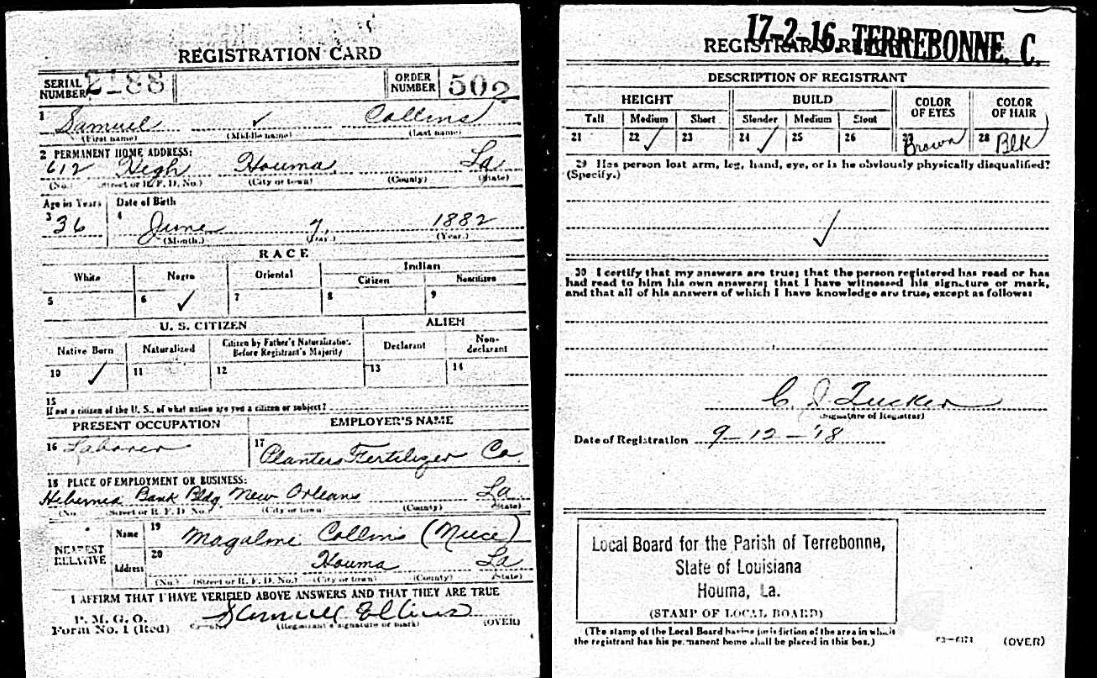 REGISTRATION CARD
SERIAL NUMBER 2188 ORDER NUMBER 502
1 Samuel ✓ Collins
(First name) (Middle name) (Last name)
2 PERMANENT HOME ADDRESS:
612 High Houma La
(No.) (Street or R. F. D. No.) (City or town) (County) (State)
Age in Years Date of Birth
3 36 4 June 7, 1882
(Month.) (Day.) (Year.)
RACE
White Negro Oriental Indian
Citizen Noncitizen
5 6 ✓ 7 8 9
U. S. CITIZEN ALIEN
Native Born Naturalized Citizen by Father's Naturalization Before Registrant's Majority Declarant Non-declarant
10 ✓ 11 12 13 14
15
If not a citizen of the U. S., of what nation are you a citizen or subject?
PRESENT OCCUPATION EMPLOYER'S NAME
16 Laborer 17 Planters Fertilizer Co.
18 PLACE OF EMPLOYMENT OR BUSINESS:
Hibernia Bank Bldg New Orleans La
(No.) (Street or R. F. D. No.) (City or town) (County) (State)
NEAREST RELATIVE
Name 19 Collins (Niece)
Address 20 Houma La
(No.) (Street or R. F. D. No.) (City or town) (County) (State)
I AFFIRM THAT I HAVE VERIFIED ABOVE ANSWERS AND THAT THEY ARE TRUE
P. M. G. O.
Form No. 1 (Red) Samuel Collins
(Registrant's signature or mark) (OVER)
17-2-16 TERREBONNE. C.
REGISTRAR'S REPORT
DESCRIPTION OF REGISTRANT
HEIGHT BUILD COLOR OF EYES COLOR OF HAIR
Tall Medium Short Slender Medium Stout
21 22 ✓ 23 24 ✓ 25 26 27 Brown 28 Blk
29 Has person lost arm, leg, hand, eye, or is he obviously physically disqualified?
(Specify.)
✓
30 I certify that my answers are true; that the person registered has read or has
had read to him his own answers; that I have witnessed his signature or mark,
and that all of his answers of which I have knowledge are true, except as follows:
C. J. Tucker
(Signature of Registrar)
Date of Registration 9-12-'18
Local Board for the Parish of Terrebonne,
State of Louisiana
Houma, La.
(STAMP OF LOCAL BOARD)
(The stamp of the Local Board having jurisdiction of the area in which
the registrant has his permanent home shall be placed in this box.)
(OVER)